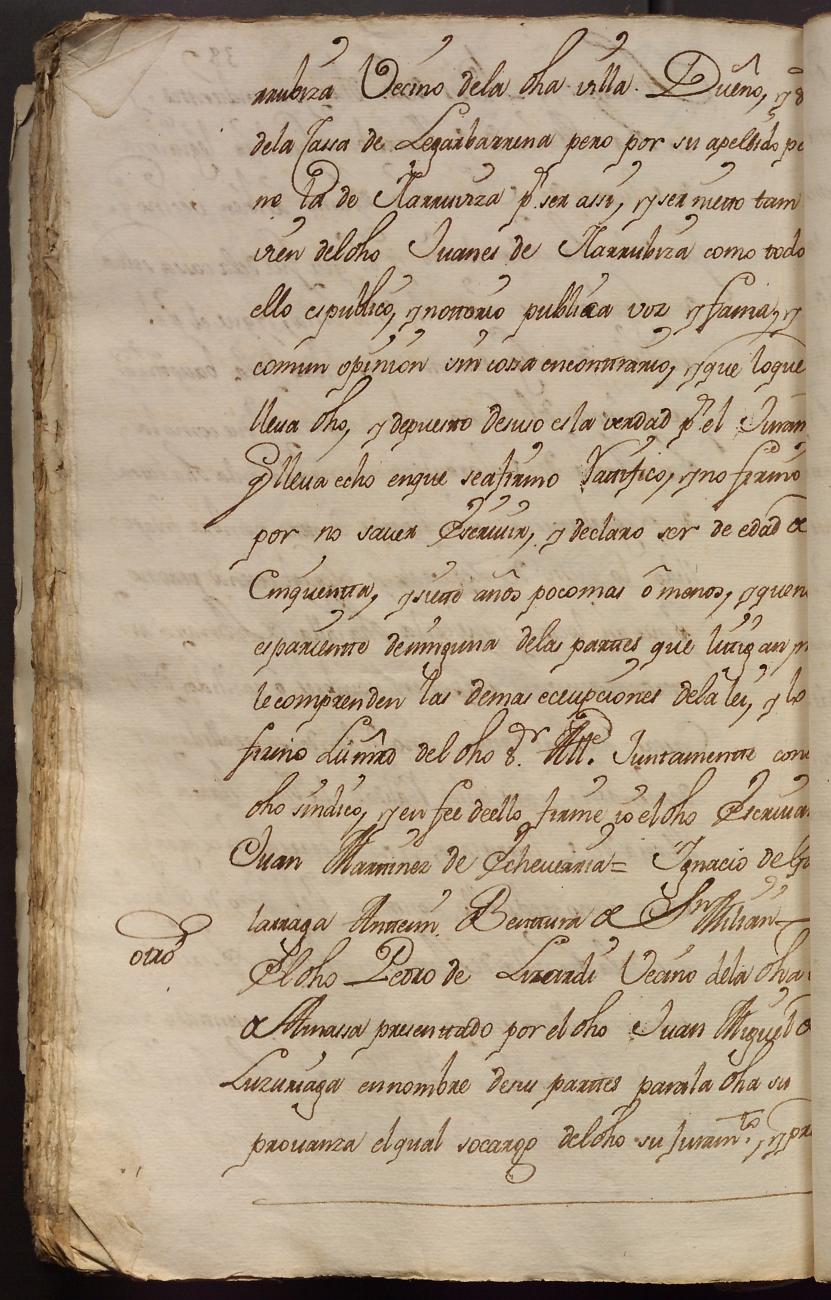 rrubiza Vecino dela dha villa. Dueño, y S
dela Cassa de Legarbarrena pero por su apellido po
ne la de Narruviza pr. ser assi, y ser nietto tam
vien del dho Juanes de Narrubiza como todo
ello es publico, y nottorio publica voz y fama, y
comun opinion sin cossa encontrrario, y que loque
lleva dho, y depuestto desuso es la verdad pr el Juram
Q lleva echo enque seafirmo Ratifico, y no firmo
por no saver Escrivir, y declaro ser de edad de
Cinquentta, y siette años pocomas ô menos, y que n
es parientte deninguna delas parttes que littigan, n
le comprenden las demas ecepciones dela lei, y lo
firmo su mrd del dho Sr. Alle. Junttamentte con e
dho sindico, y en fee deello firme io el dho Escriva
Juan Marttinez de Echeverria = Ignacio de
larraga Anttemi Benttura de Sn Milian
otro
El dho Pedro de Lizardi Vecino dela dha
de Amassa presenttado por el dho Juan Miguel de
Luzuriaga ennombre desus parttes parala dha su
provanza el qual socargo del dho su Juramto., y pr